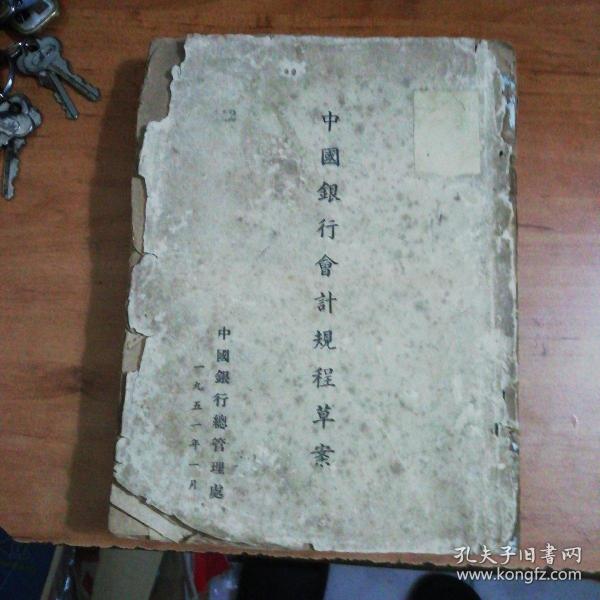 中國銀行會計規程草案
中國銀行總管理處
一九五一年一月
孔夫子旧書网
www.kongfz.com